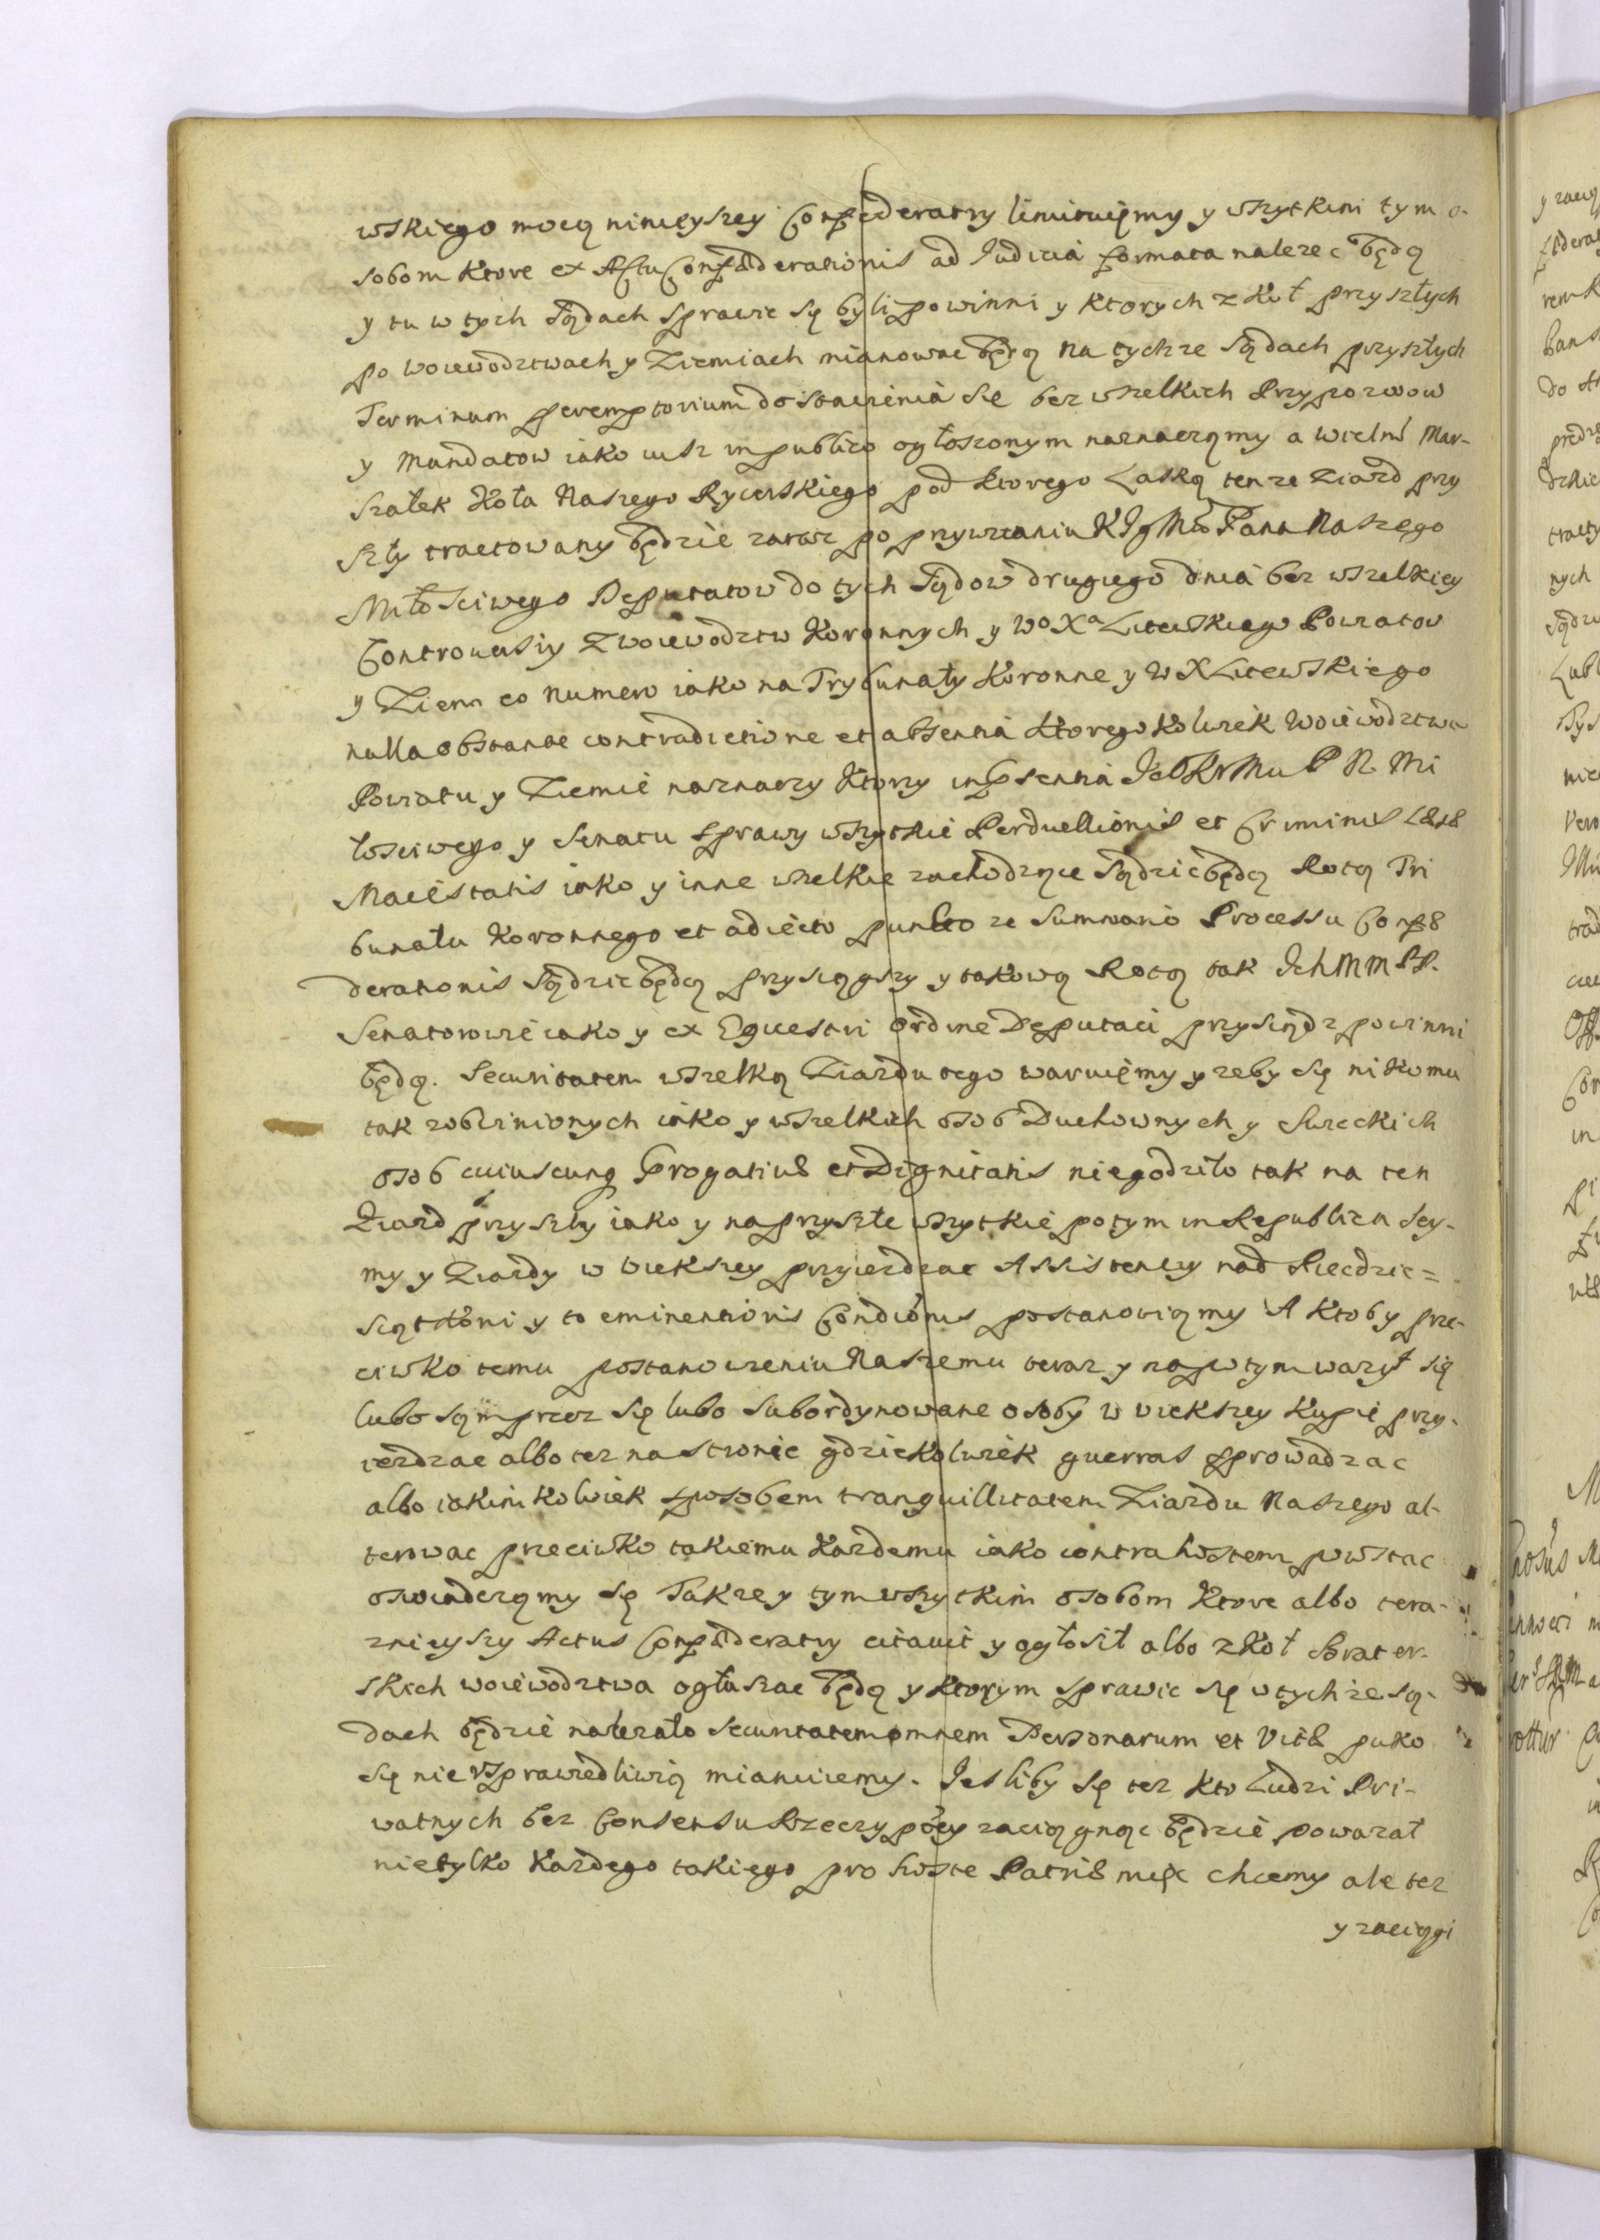 wskiego mocą ninieyszey Confæderatiy limituięmy y wszytkim tym o-
sobom Ktore ex Actu Confæderationis ad Iudicia formata nalezec będą
y tu w tych Sądach sprawic się byli powinni y Ktorych z Koł przyszłych
po woiewodztwach y Ziemiach mianowac będą na tychze Sądach przyszłych
Terminum peremptorium do stawienia się bez wszelkich Przypozwow
y Mandatow iako iusz in publico ogłoszonym naznacząmy a wielm Mar-
szałek Koła Naszego Rycerskiego pod Ktorego Laską tenze Ziazd przy
szły tractowany będzie zaraz po przywitaniu KJgMci Pana Naszego
Miłosciwego Deputatow do tych Sądow drugiego dnia bez wszelkiey
Controuersiy z woiewodztw Koronnych y Wo Xa Litewskiego Powiatow
y Ziem eo numero iako na Trybunały Koronne y W X Litewskiego
nulla obstante contradictione et absentia Ktoregokolwiek Woiewodztwa
Powiatu y Ziemie naznaczy Ktorzy in Psentia P N Mi
łosciwego y Senatu sprawy wszytkie Perduellionis et Criminis Læsæ
Maiestatis iako y inne wszelkie zachodzące Sądzic będą Rotą Tri
bunału Koronnego et adiecto puncto ze Summario Processu Confæ
derationis Sądzic będą przysiągszy y takową Rotą tak Ich MM PP.
Senatorowie iako y ex Equestri ordine Deputaci przysiądz powinni
będą. Securitatem wszelką Ziazdu tego waruięmy y zeby się nikomu
tak zobwinionych iako y wszelkich osob Duchownych y Swieckich
osob cuiuscunq Progatiuæ et Dignitatis niegodziło tak na ten
Ziazd przyszły iako y na przyszłe wszytkie potym in Republica Sey-
my y Ziazdy w wiekszey przyiezdzac Assistenciy nad Piecdzie=
siąt Koni y to eminentioris Condionis postanowiąmy A Ktoby prze-
ciwko temu postanowieniu Naszemu teraz y napotym wazył się
lubo sąm przez się lubo Subordynowane osoby w wiekszey Kupie przy-
iezdzac albo tez na stronie gdziekolwiek guerras sprowadzac
albo iakim kolwiek sposobem tranquillitatem Ziazdu Naszego al-
terowac przeciwko takiemu Kazdemu iako contra hostem powstac
oswiadcząmy się Takze y tym wszytkim osobom Ktore albo tera-
znieyszy Actus Confæderatiy citauit y ogłosił albo z Koł Brater-
skich woiewodztwa ogłaszac będą y Ktorym sprawic się w tychze są-
dach będzie nalezało securitatem omnem Personarum et Vitæ poko
się nie vsprawiedliwią mianuiemy. Iesliby się tez kto Ludzi Pri-
watnych bez Consensu Rzeczypołey zaciągnąc będzie powazał
nietylko Kazdego takiego pro hoste Patriæ miec chcemy ale tez
y zaciągi